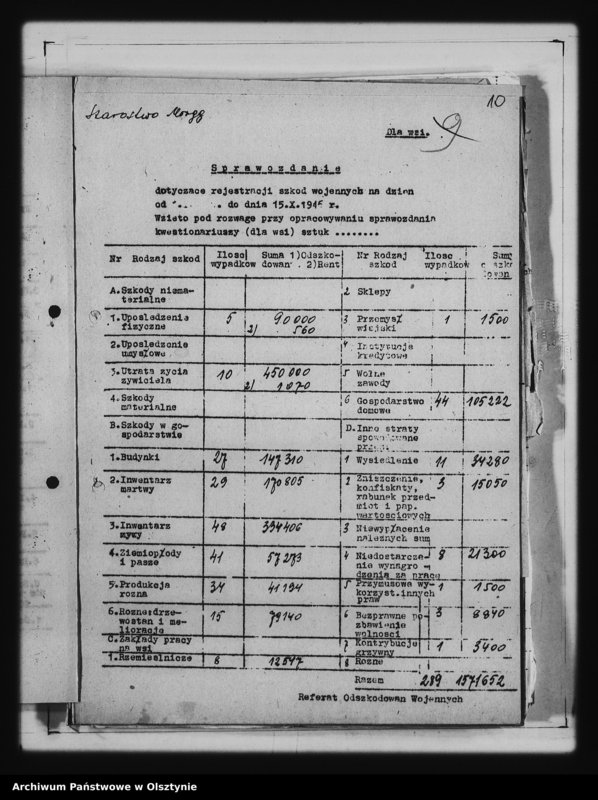 10
Starostwo
Dla wsi. 9
Sprawozdanie
dotyczące rejestracji szkod wojennych na dzien
od do dnia 15.X.1945 r.
Wzieto pod rozwage przy opracowywaniu sprawozdania
kwestionariuszy (dla wsi) sztuk ........
Nr Rodzaj szkod Ilosc wypadkow Suma 1)Odszko-dowan 2)Rent
A.Szkody niema-
terialne
1.Uposledzenia fizyczne 5 90000
2) 560
2.Uposledzenie
umysłowe
3.Utrata zycia zywiciela 10 450000
2) 1070
4.Szkody
materialne
B.Szkody w go-
spodarstwie
1.Budynki 27 147310
2.Inwentarz martwy 29 170805
3.Inwentarz zywy 48 394406
4.Ziemiopłody i pasze 41 57273
5.Produkcja rozna 34 41194
6.Rozne:drze-
wostan i me-
lioracje 15 79140
C.Zakłady pracy
na wsi
1.Rzemieslnicze 8 12547
Nr Rodzaj szkod Ilosc wypadkow
2 Sklepy
3 Przemysł wiejski 1 1500
4 Instytucje
kredytowe
5 Wolne
zawody
6 Gospodarstwo domowe 44 105222
D.Inne straty
spowodowane
1 Wysiedlenie 11 34280
2 Zniszczenie, 3 15050
konfiskaty,
rabunek przed-
miot i pap.
wartosciowych
3 Niewypłacenie
naleznych sum
4 Niedostarcze- 8 21300
nie wynagro-
dzenia za prace
5 Przymusowe wy- 1 1500
korzyst.innych
praw
6 Bezprawne po- 3 8840
zbawienie
wolnosci
7 Kontrybucje 1 3400
grzywny
8 Rozne
Razem 289 1571652
Referat Odszkodowan Wojennych
Archiwum Państwowe w Olsztynie